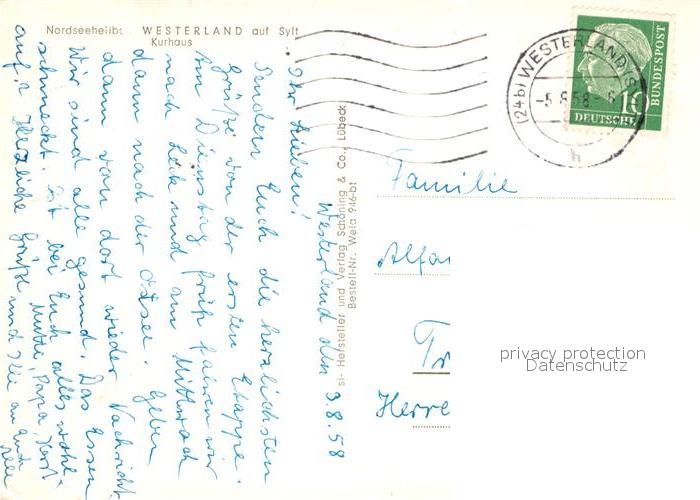 Nordseeheilb. WESTERLAND auf Sylt
Kurhaus
Westerland den 3.8.58
Ihr Lieben!
Senden Euch die herzlichsten
Grüße von der ersten Etappe.
Am Dienstag früh fahren wir
nach und am Mittwoch
dann nach der Ostsee. Geben
dann von dort wieder Nachricht.
Wir sind alle gesund. Das Essen
schmeckt. Ist bei Euch alles wohl-
auf? Herzliche Grüße
Mutti, Papa, Horst
und an Euch
alle
Hersteller und Verlag Schöning & Co., Lübeck
Bestell-Nr. Wela 946-bt
(24b) WESTERLAND (SYLT)
-5.8.58
h
10
DEUTSCHE
BUNDESPOST
Familie
Alfo
Tr
Herre
privacy protection
Datenschutz